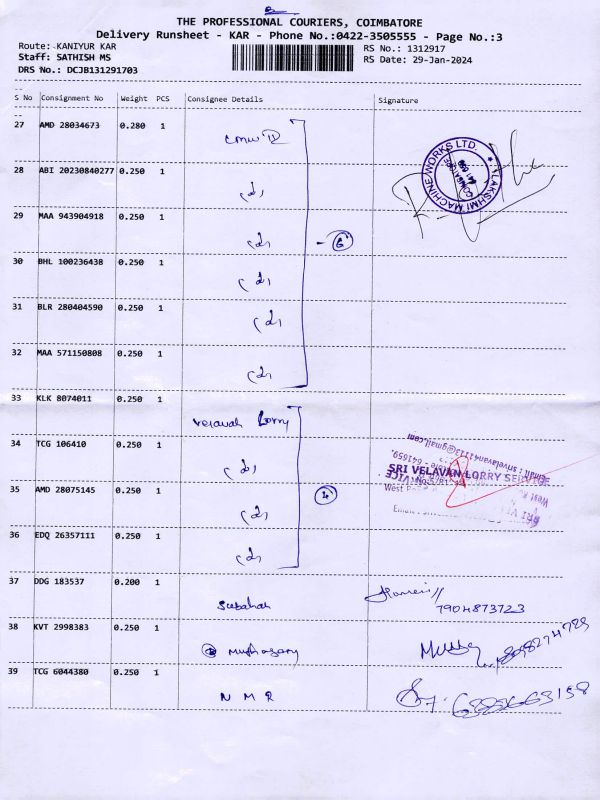 THE PROFESSIONAL COURIERS, COIMBATORE
Delivery Runsheet - KAR - Phone No.:0422-3505555 - Page No.:3
Route: KANIYUR KAR
RS No.: 1312917
Staff: SATHISH MS
RS Date: 29-Jan-2024
DRS No.: DCJB131291703
S No Consignment No Weight PCS Consignee Details Signature
27 AMD 28034673 0.280 1
LAKSHMI MACHINE WORKS LTD.
28 ABI 20230840277 0.250 1
29 MAA 943904918 0.250 1
6
30 BHL 100236438 0.250 1
31 BLR 280404590 0.250 1
32 MAA 571150808 0.250 1
33 KLK 8074011 0.250 1
Velavan Lorry
34 TCG 106410 0.250 1
SRI VELAVAN LORRY SERVICE
35 AMD 28075145 0.250 1
4
36 EDQ 26357111 0.250 1
37 DDG 183537 0.200 1
7904873723
38 KVT 2998383 0.250 1
39 TCG 6044380 0.250 1
N M R